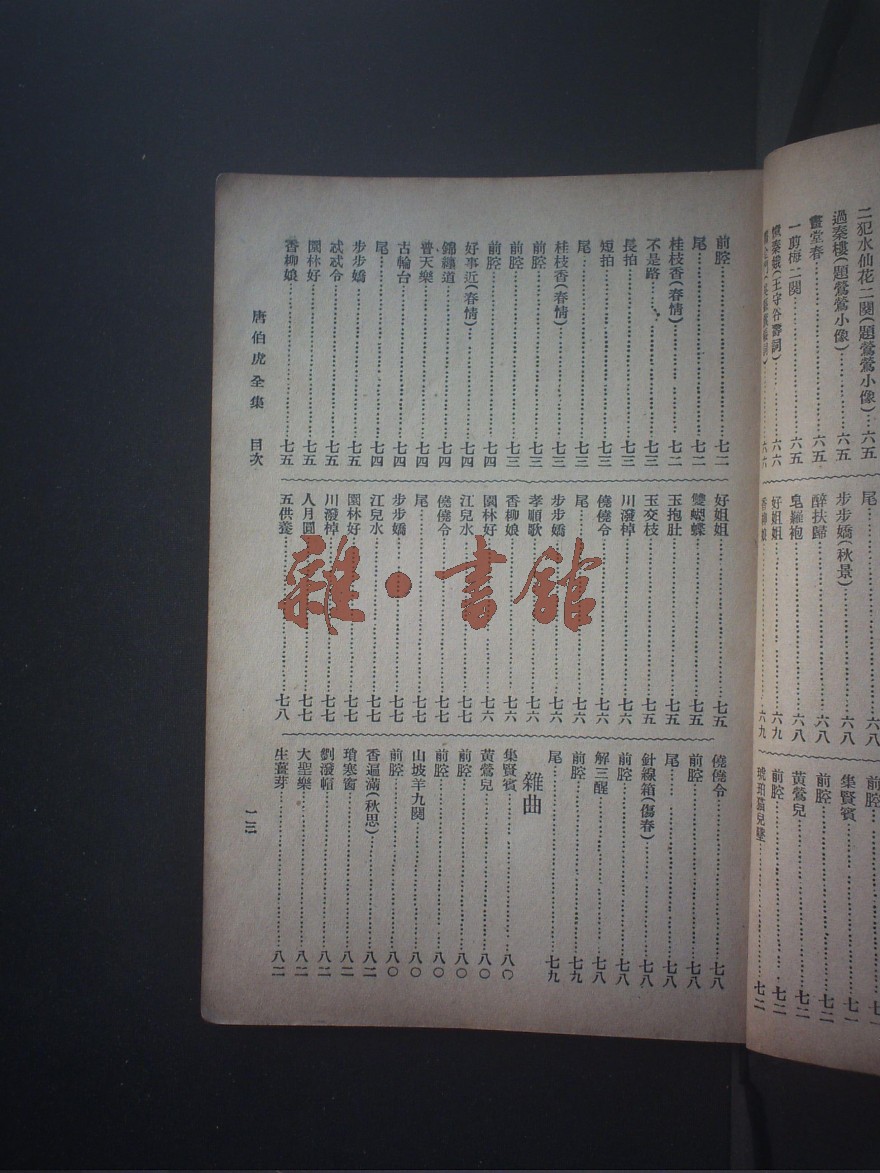 二犯水仙花二闋(題鶯鶯小像)……六五
過秦樓(題鶯鶯小像)……六五
畫堂春……六五
一剪梅二闋……六五
秦娥(王守谷壽詞)……六六
尾……六八
步步嬌(秋景)……六八
醉扶歸……六八
皂羅袍……六八
好姐姐……六九
香柳娘……六九
前腔……七一
集賢賓……七一
前腔……七二
黃鶯兒……七二
前腔……七二
琥珀貓兒墜……七二
前腔……七二
尾……七二
桂枝香(春情)……七二
不是路……七三
長拍……七三
短拍……七三
尾……七三
桂枝香(春情)……七三
前腔……七三
前腔……七三
前腔……七四
好事近(春情)……七四
錦纏道……七四
普天樂……七四
古輪台……七四
尾……七四
步步嬌……七五
忒忒令……七五
園林好……七五
香柳娘……七五
好姐姐……七五
雙蝴蝶……七五
玉抱肚……七五
玉交枝……七五
川潑棹……七六
僥僥令……七六
尾……七六
步步嬌……七六
孝順歌……七六
香柳娘……七六
園林好……七六
江兒水……七七
僥僥令……七七
尾……七七
步步嬌……七七
江兒水……七七
園林好……七七
川潑棹……七七
人月圓……七七
五供養……七八
僥僥令……七八
前腔……七八
尾……七八
針線箱(傷春)……七八
前腔……七八
解三醒……七八
前腔……七九
尾……七九
雜曲
集賢賓……八〇
黃鶯兒……八〇
前腔……八〇
前腔……八〇
山坡羊九闋……八〇
前腔……八〇
香遍滿(秋思)……八二
瑣寒窗……八二
劉潑帽……八二
大聖樂……八二
生薑芽……八二
唐伯虎全集 目次
一三
雜·書館